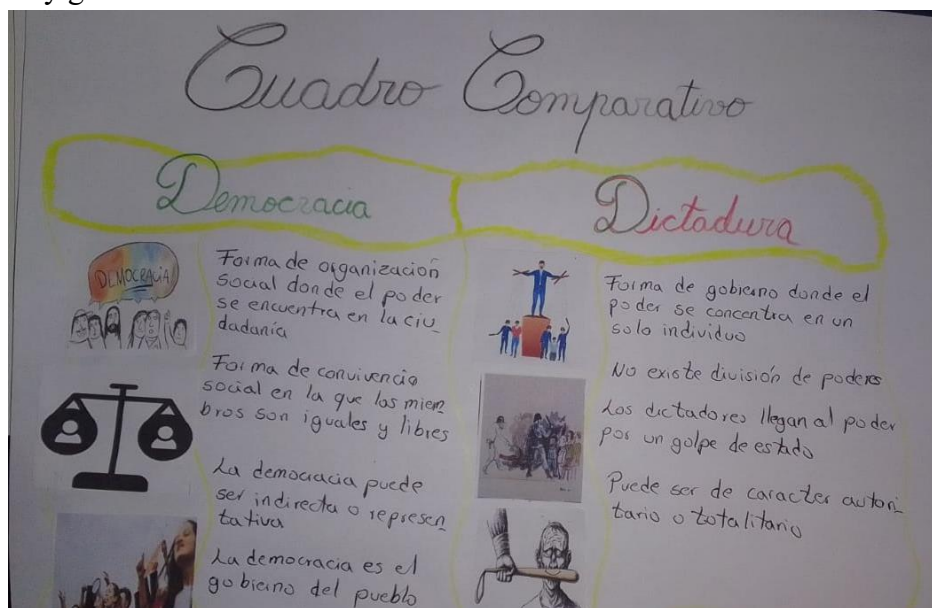 Cuadro Comparativo
Democracia
DEMOCRACIA
Forma de organización
Social donde el poder
se encuentra en la ciu_
dadanía
Forma de convivencia
social en la que los miem_
bros son iguales y libres
La democracia puede
ser indirecta o represen_
tativa
La democracia es el
gobierno del pueblo
Dictadura
Forma de gobierno donde el
poder se concentra en un
solo individuo
No existe división de poderes
Los dictadores llegan al poder
por un golpe de estado
Puede ser de caracter autori_
tario o totalitario